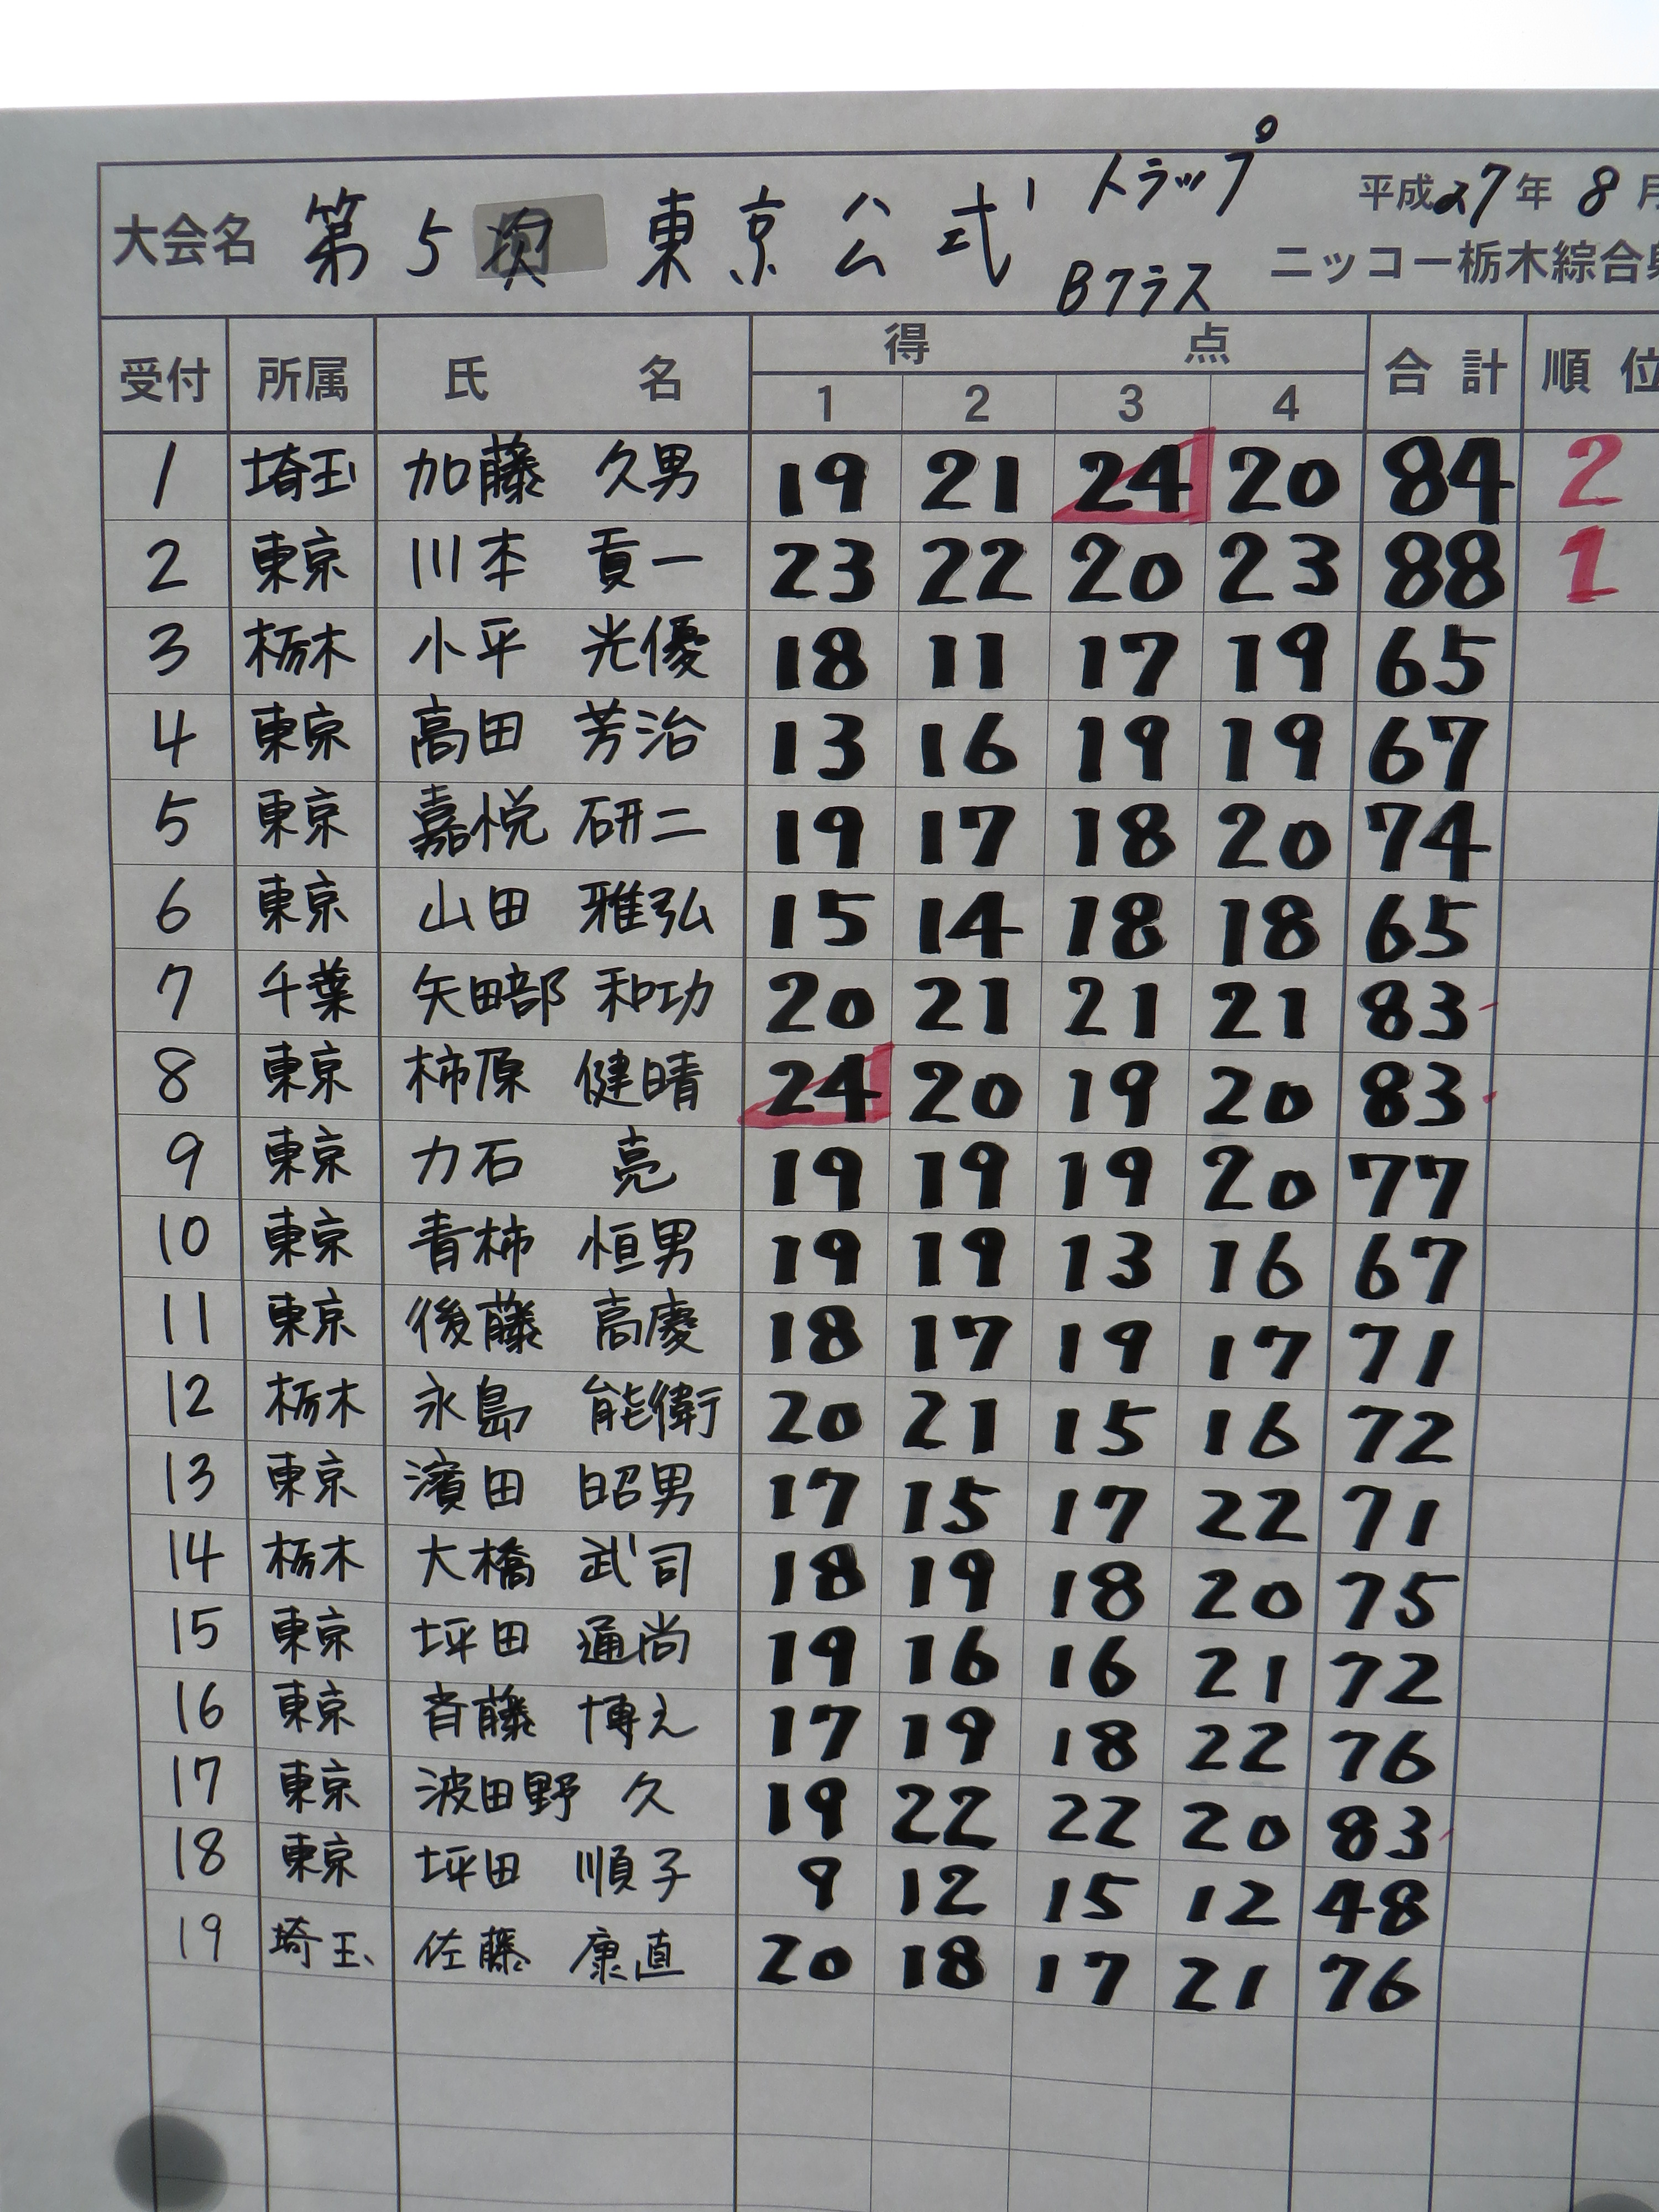 大会名 第5次 東京公式 トラップ 平成27年 8月
Bクラス ニッコー栃木綜合
受付 所属 氏 名 得 点 合計 順位
1 2 3 4
1 埼玉 加藤 久男 19 21 24 20 84 2
2 東京 川本 貢一 23 22 20 23 88 1
3 栃木 小平 光優 18 11 17 19 65
4 東京 高田 芳治 13 16 19 19 67
5 東京 嘉悦 研二 19 17 18 20 74
6 東京 山田 雅弘 15 14 18 18 65
7 千葉 矢田部 和功 20 21 21 21 83
8 東京 柿原 健晴 24 20 19 20 83
9 東京 力石 亮 19 19 19 20 77
10 東京 青柿 恒男 19 19 13 16 67
11 東京 後藤 高慶 18 17 19 17 71
12 栃木 永島 能衛 20 21 15 16 72
13 東京 濱田 昭男 17 15 17 22 71
14 栃木 大橋 武司 18 19 18 20 75
15 東京 坪田 通尚 19 16 16 21 72
16 東京 斉藤 博之 17 19 18 22 76
17 東京 波田野 久 19 22 22 20 83
18 東京 坪田 順子 9 12 15 12 48
19 埼玉 佐藤 康直 20 18 17 21 76